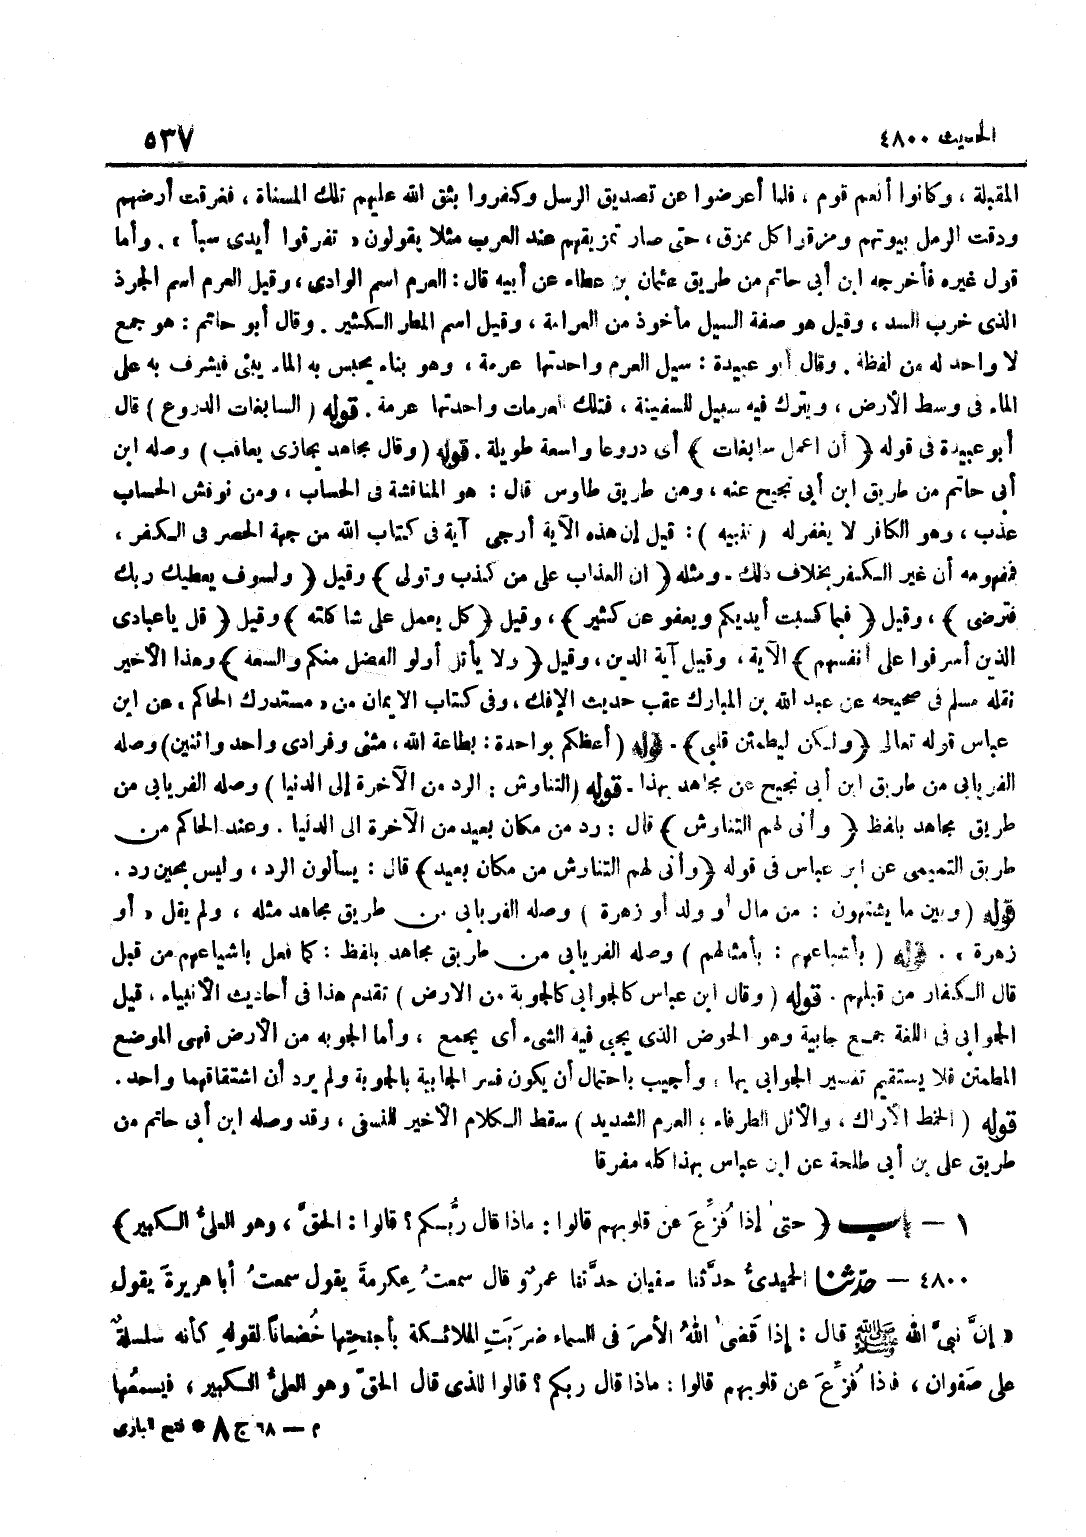 الحديث ٤٨٠٠
٥٣٧
المقبلة ، وكانوا أنعم قوم ، فلما أعرضوا عن تصديق الرسل وكفروا بثق الله عليهم تلك المسناة ، فغرقت أرضهم
ودقت الرمل بيوتهم ومزقوا كل ممزق ، حتى صار تمزيقهم عند العرب مثلا يقولون « تفرقوا أيدى سبأ » . وأما
قول غيره فأخرجه ابن أبى حاتم من طريق عثمان بن عطاء عن أبيه قال : العرم اسم الوادى ، وقيل العرم اسم الجرذ
الذى خرب السد ، وقيل هو صفة السيل مأخوذ من العرامة ، وقيل اسم المطر الكثير . وقال أبو حاتم : هو جمع
لا واحد له من لفظه . وقال أبو عبيدة : سيل العرم واحدتها عرمة ، وهو بناء يحبس به الماء يبنى فيشرف به على
الماء فى وسط الأرض ، ويترك فيه سبيل للسفينة ، فتلك العرمات واحدتها عرمة . قوله ( السابغات الدروع ) قال
أبو عبيدة فى قوله ﴿ أن اعمل سابغات ﴾ أى دروعا واسعة طويلة . قوله ( وقال مجاهد يجازى يعاقب ) وصله ابن
أبى حاتم من طريق ابن أبى نجيح عنه ، ومن طريق طاوس قال : هو المناقشة فى الحساب ، ومن نوقش الحساب
عذب ، وهو الكافر لا يغفر له ( تنبيه ) : قيل إن هذه الآية أرجى آية فى كتاب الله من جهة الحصر فى الكفر ،
فمفهومه أن غير الكفر بخلاف ذلك . ومثله ﴿ ان العذاب على من كذب وتولى ﴾ وقيل ﴿ ولسوف يعطيك ربك
فترضى ﴾ ، وقيل ﴿ فبما كسبت أيديكم ويعفو عن كثير ﴾ ، وقيل ﴿ كل يعمل على شاكلته ﴾ وقيل ﴿ قل يا عبادى
الذين أسرفوا على أنفسهم ﴾ الآية ، وقيل آية الدين ، وقيل ﴿ ولا يأتل أولو الفضل منكم والسعة ﴾ وهذا الأخير
نقله مسلم فى صحيحه عن عبد الله بن المبارك عقب حديث الإفك ، وفى كتاب الايمان من « مستدرك الحاكم » عن ابن
عباس قوله تعالى ﴿ ولكن ليطمئن قلبى ﴾ . قوله ( أعظكم بواحدة : بطاعة الله ، مثنى وفرادى واحد واثنين ) وصله
الفريابى من طريق ابن أبى نجيح عن مجاهد بهذا . قوله ( التناوش : الرد من الآخرة إلى الدنيا ) وصله الفريابى من
طريق مجاهد بلفظ ﴿ وأنى لهم التناوش ﴾ قال : رد من مكان بعيد من الآخرة الى الدنيا . وعند الحاكم من
طريق التميمى عن ابن عباس فى قوله ﴿ وأنى لهم التناوش من مكان بعيد ﴾ قال : يسألون الرد ، وليس بحين رد .
قوله ( وبين ما يشتهون : من مال أو ولد أو زهرة ) وصله الفريابى من طريق مجاهد مثله ، ولم يقل « أو
زهرة » . قوله ( بأشياعهم : بأمثالهم ) وصله الفريابى من طريق مجاهد بلفظ : كما فعل باشياعهم من قبل
قال الكفار من قبلهم . قوله ( وقال ابن عباس كالجوابى كالجوبة من الارض ) تقدم هذا فى أحاديث الأنبياء ، قيل
الجوابى فى اللغة جمع جابية وهو الحوض الذى يجبى فيه الشىء أى يجمع ، وأما الجوبه من الأرض فهى الموضع
المطمئن فلا يستقيم تفسير الجوابى بها ، وأجيب باحتمال أن يكون فسر الجابية بالجوبة ولم يرد أن اشتقاقهما واحد .
قوله ( الخمط الأراك ، والأثل الطرفاء ، العرم الشديد ) سقط الكلام الأخير للنسفى ، وقد وصله ابن أبى حاتم من
طريق على بن أبى طلحة عن ابن عباس بهذا كله مفرقا
١ – باب ﴿ حتى إذا فُزِّعَ عن قلوبهم قالوا : ماذا قال ربُّكم ؟ قالوا : الحقَّ ، وهو العلىُّ الكبير ﴾
٤٨٠٠ – حدّثنا الحميدىُّ حدَّثنا سفيان حدَّثنا عمرٌو قال سمعتُ عِكرمةَ يقول سمعتُ أبا هريرةَ يقول
« إنَّ نبىَّ الله ﷺ قال : إذا قَضى اللهُ الأمرَ فى السماء ضرَبَتِ الملائكة بأجنحتِها خُضعاناً لقولهِ كأنه سلسلةٌ
على صَفوان ، فاذا فُزِّعَ عن قلوبهم قالوا : ماذا قال ربكم ؟ قالوا للذى قال الحقَّ وهو العلىُّ الكبير ، فيسمعُها
م – ٦٨ ج ٨ * فتح البارى